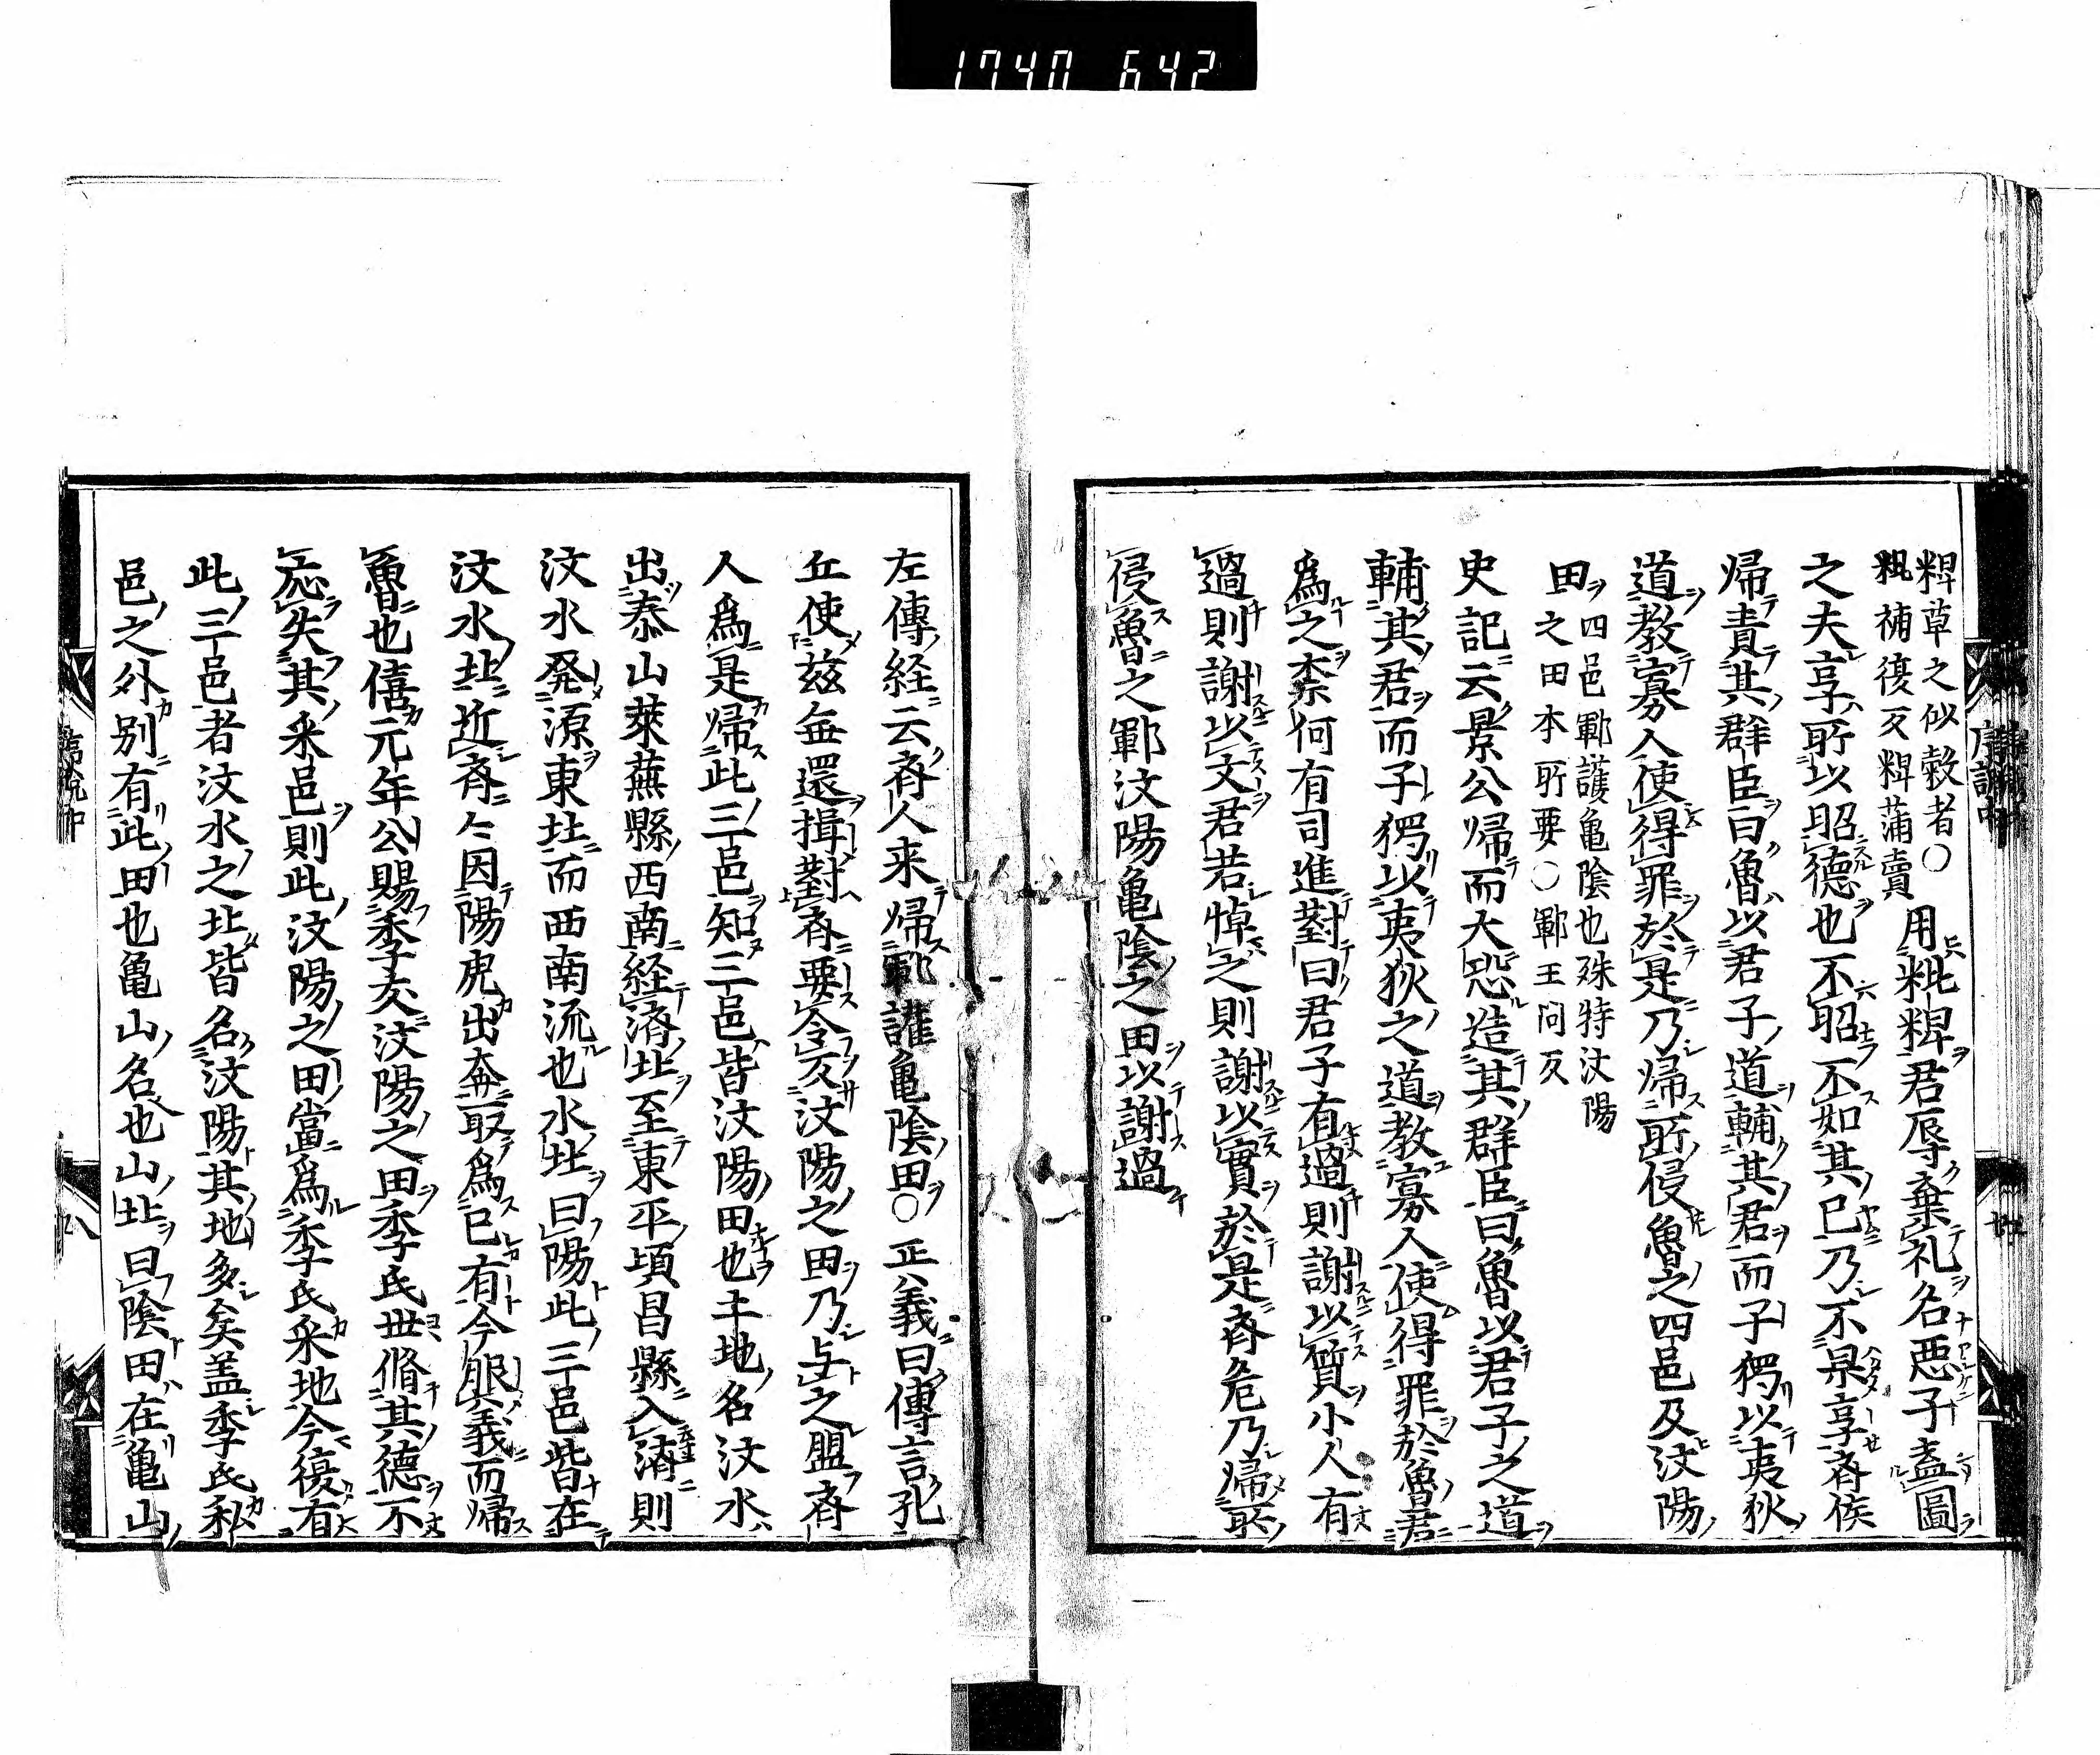 1740 642
粺草之似穀者○
粃補復反粺蒲賣
用粃粺君辱棄礼名悪子盍圖
之夫享所以昭德也不昭不如其已乃不果享斉侯
帰責其群臣曰魯以君子道輔其君而子獨以夷狄
道教寡人使得罪於是乃帰所侵魯之四邑及汶陽
田
四邑鄆護亀陰也殊特汶陽
之田本所要○鄆王問反
史記云景公帰而大恐造其群臣曰魯以君子之道
輔其君而子獨以夷狄之道教寡人使得罪於魯君
為之柰何有司進對曰君子有過則謝以質小人有
過則謝以文君若悼之則謝以實於是斉危乃帰所
侵魯之鄆汶陽亀陰之田以謝過
左傳経云斉人来帰鄆讙亀陰田○正義曰傳言孔
丘使茲無還揖對斉要令反汶陽之田乃与之盟斉
人為是帰此三邑知三邑皆汶陽田也土地名汶水
出泰山萊蕪縣西南経済北至東平須昌縣入済則
汶水発源東北而西南流也水北曰陽此三邑皆在
汶水北近斉々因陽虎出奔取為己有今服義而帰
魯也僖元年公賜季友汶陽之田季氏世脩其德不
応失其采邑則此汶陽之田當為季氏采地今復有
此三邑者汶水之北皆名汶陽其地多矣盖季氏私
邑之外別有此田也亀山名也山北曰陰田在亀山